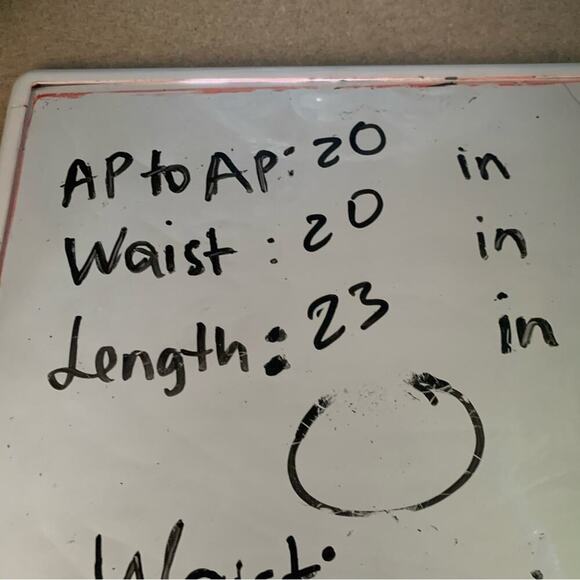 AP to AP: 20 in
Waist : 20 in
Length: 23 in
Waist: